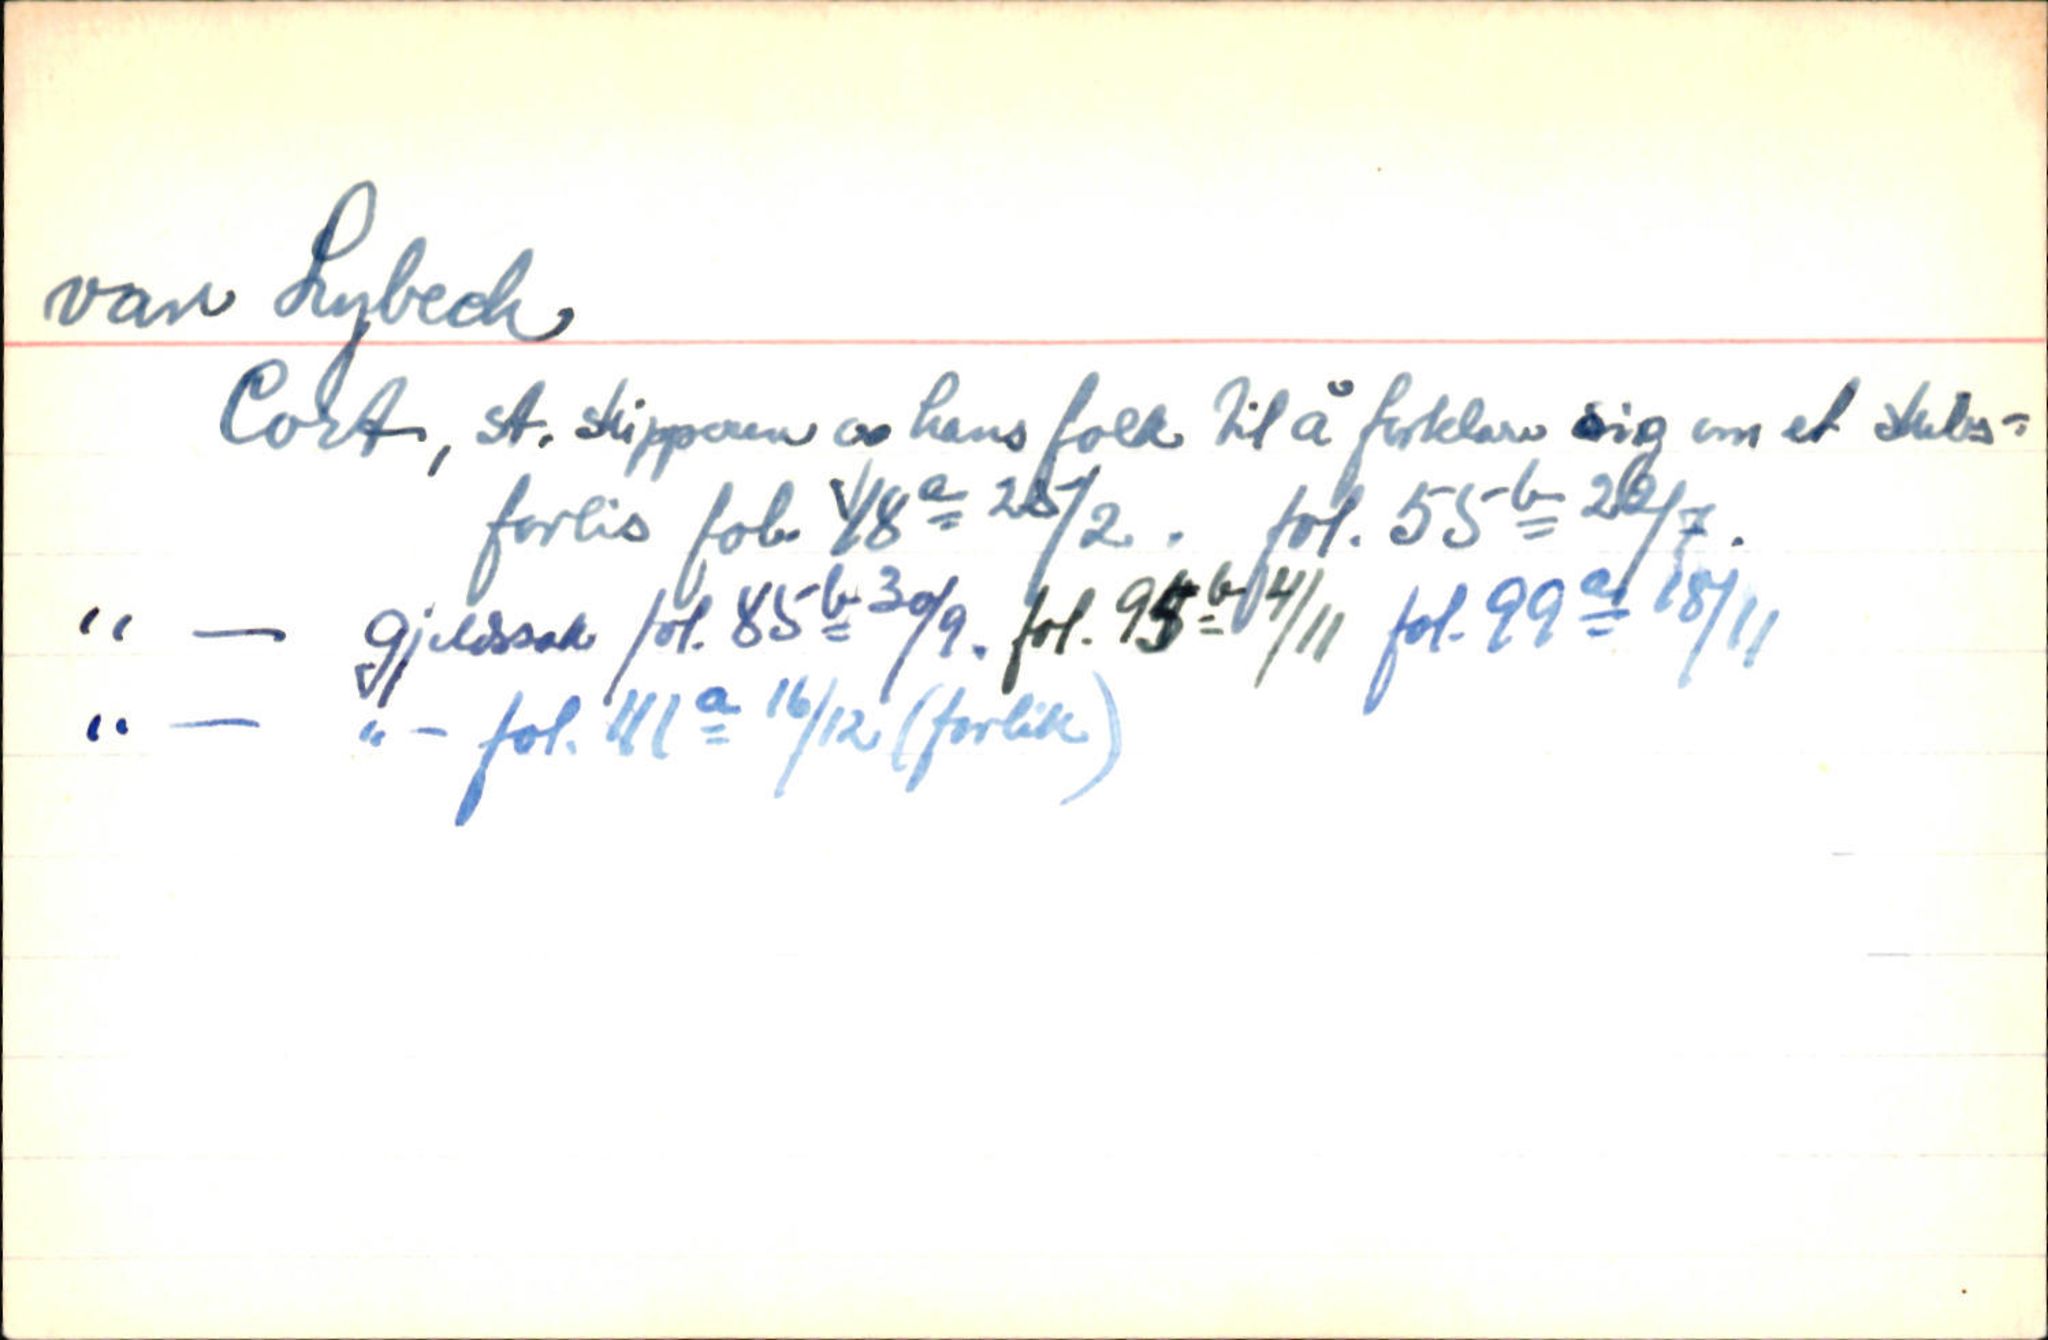 van Lybeck
Cort, st. skipperen og hans folk til å forklare sig om et skibs=
forlis fol. 18a 25/2. fol. 55b 22/7.
" — gjeldssak fol. 85b 30/9. fol. 95b 4/11 fol. 99a 18/11
" — " — fol. 111a 16/12 (forlik)